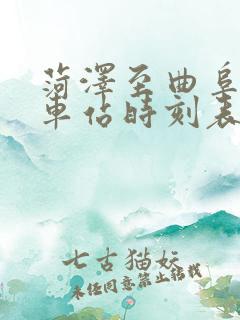 菏澤至曲阜
車佔時刻表
七古猫妖
未経同意禁止转载